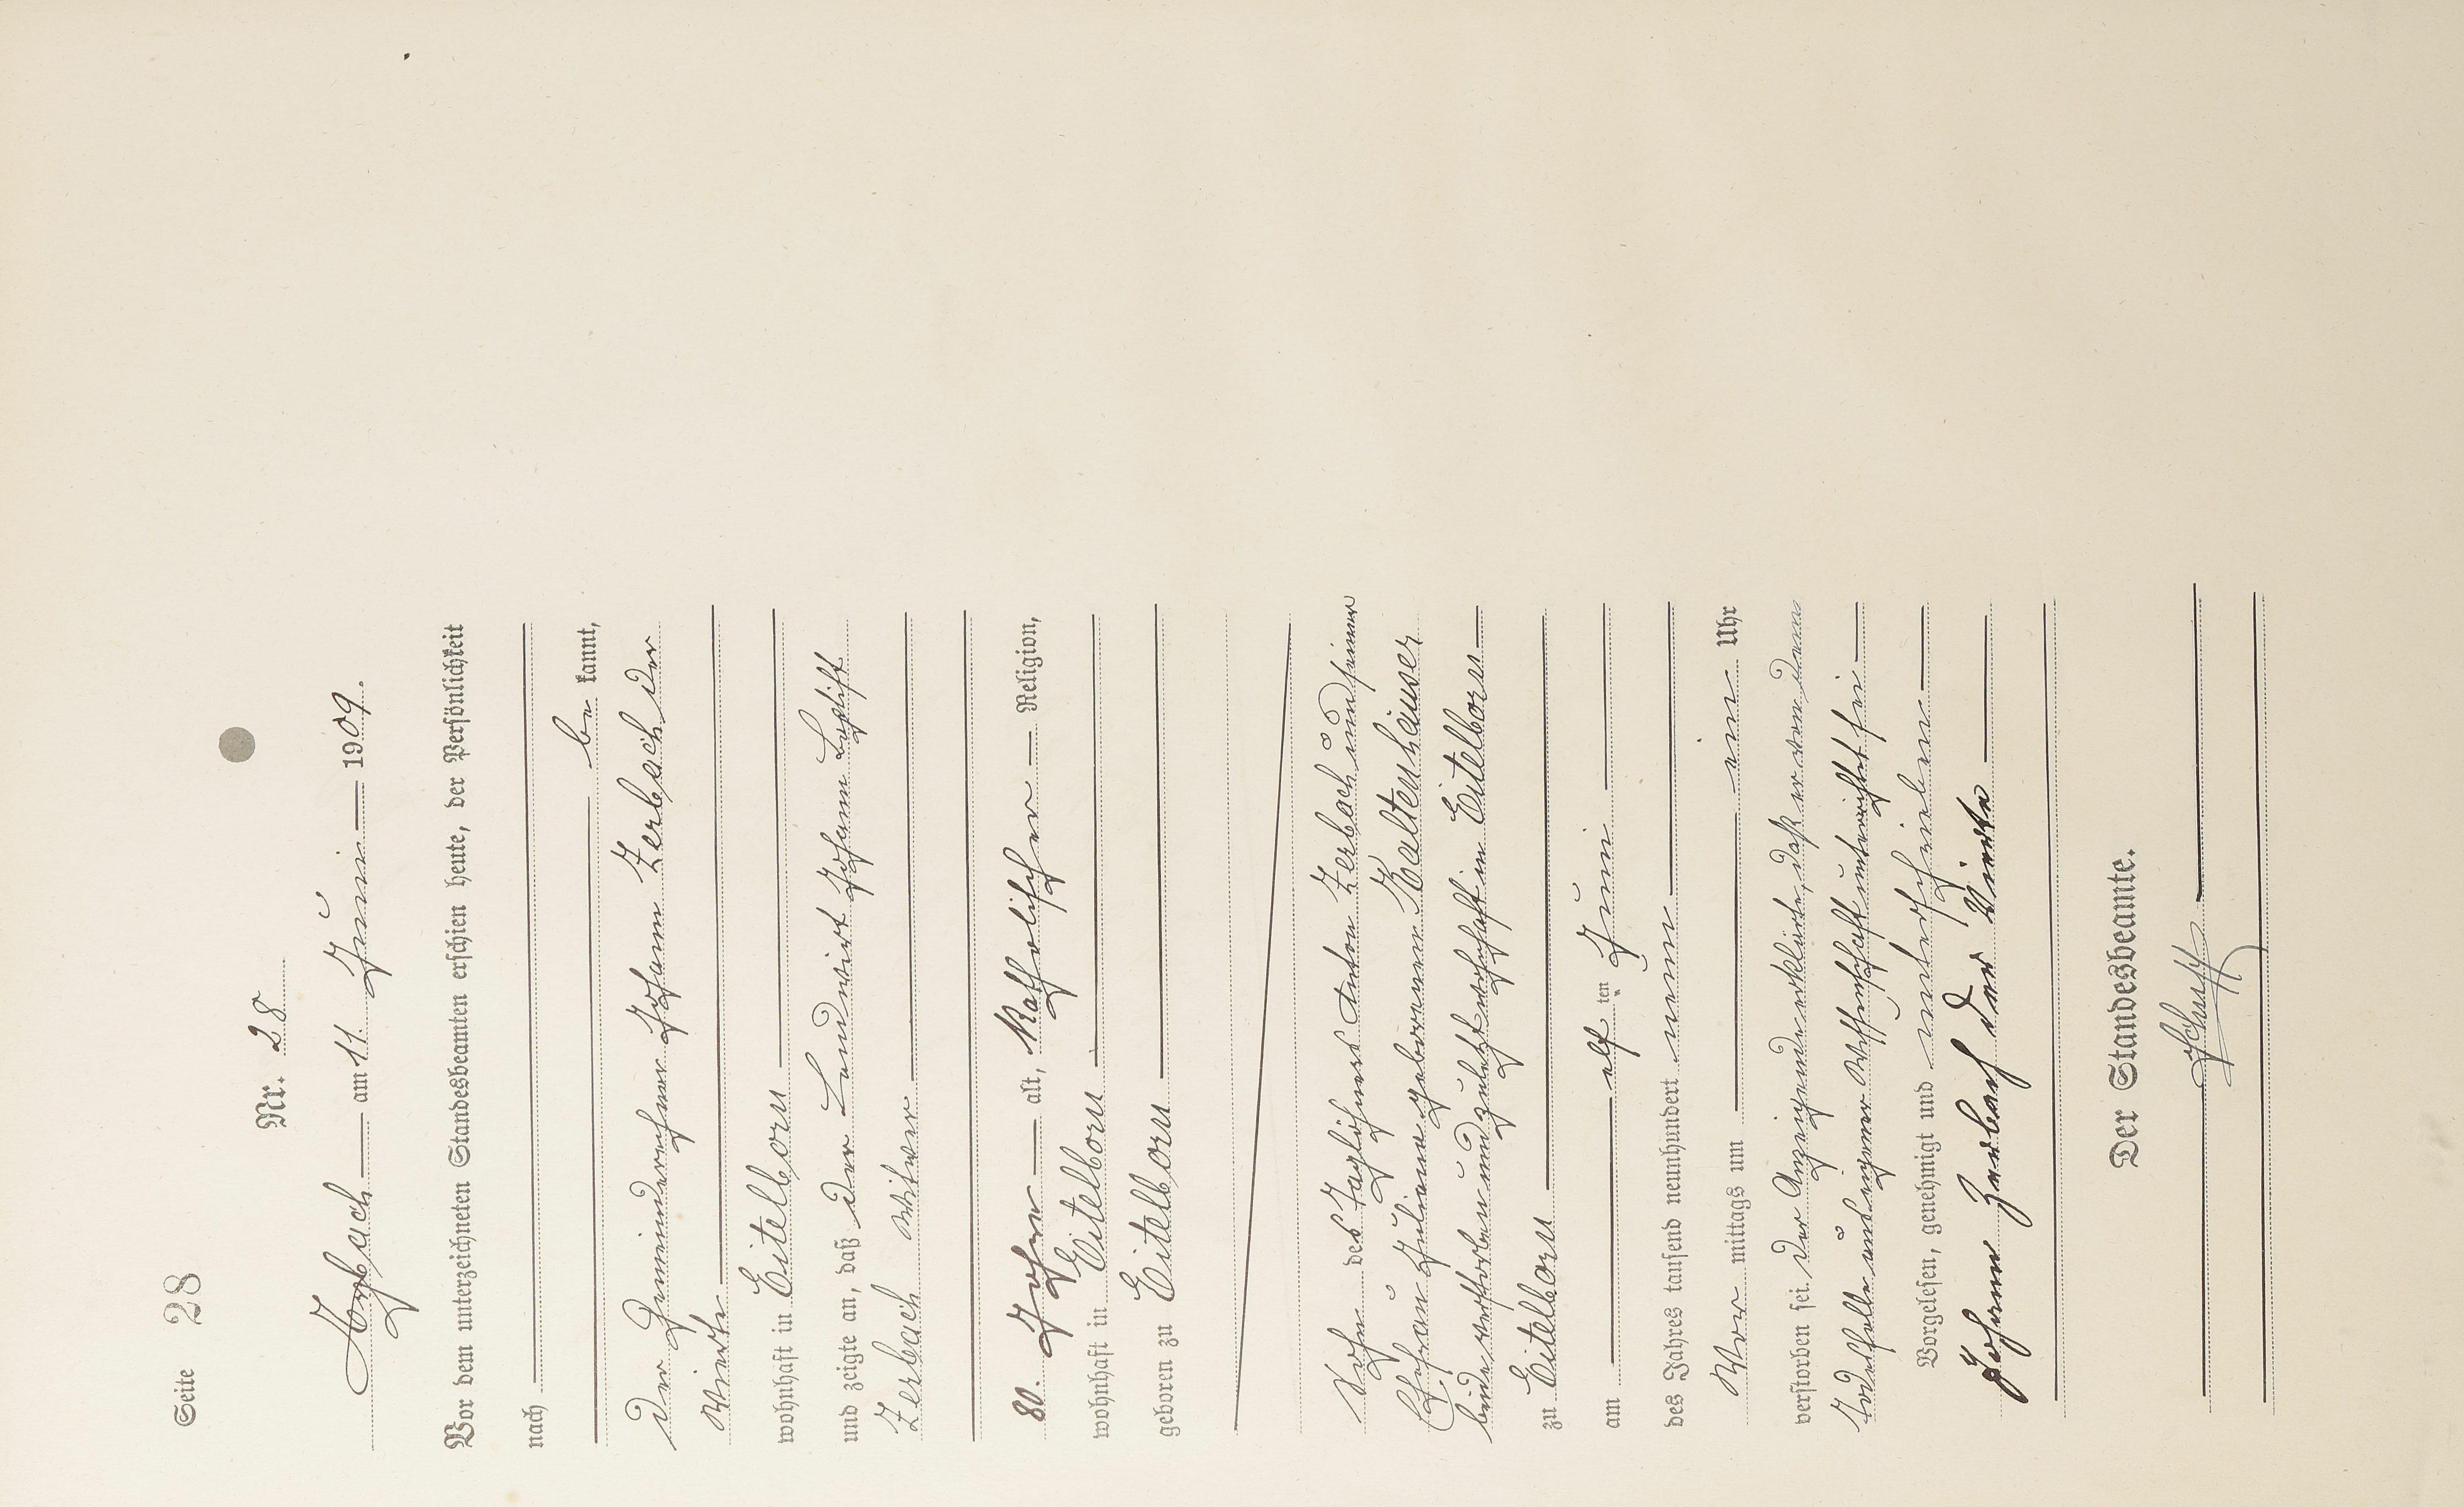 Seite 28
Nr. 28
Arzbach am 11. Juni 1909.
Vor dem unterzeichneten Standesbeamten erschien heute, der Persönlichkeit
nach
be kannt,
der Gemeinderechner Johann Zerbach der
Vierte
wohnhaft in Eitelborn
und zeigte an, daß der Landwirt Johann Baptist
Zerbach Witwer
80. Jahre alt, Katholischer Religion,
wohnhaft in Eitelborn
geboren zu Eitelborn
Sohn des Taglöhners Anton Zerbach und seiner
Ehefrau Juliana geborenen Kaltenhäuser
beide verstorben und zuletzt wohnhaft in Eitelborn
zu Eitelborn
am elf ten Juni
des Jahres tausend neunhundert neun
Vor mittags um ein Uhr
verstorben sei. Der Anzeigende erklärte, daß er von dem
Todesfalle aus eigener Wissenschaft unterrichtet sei
Vorgelesen, genehmigt und unterschrieben
Johann Zerbach der Vierte
Der Standesbeamte.